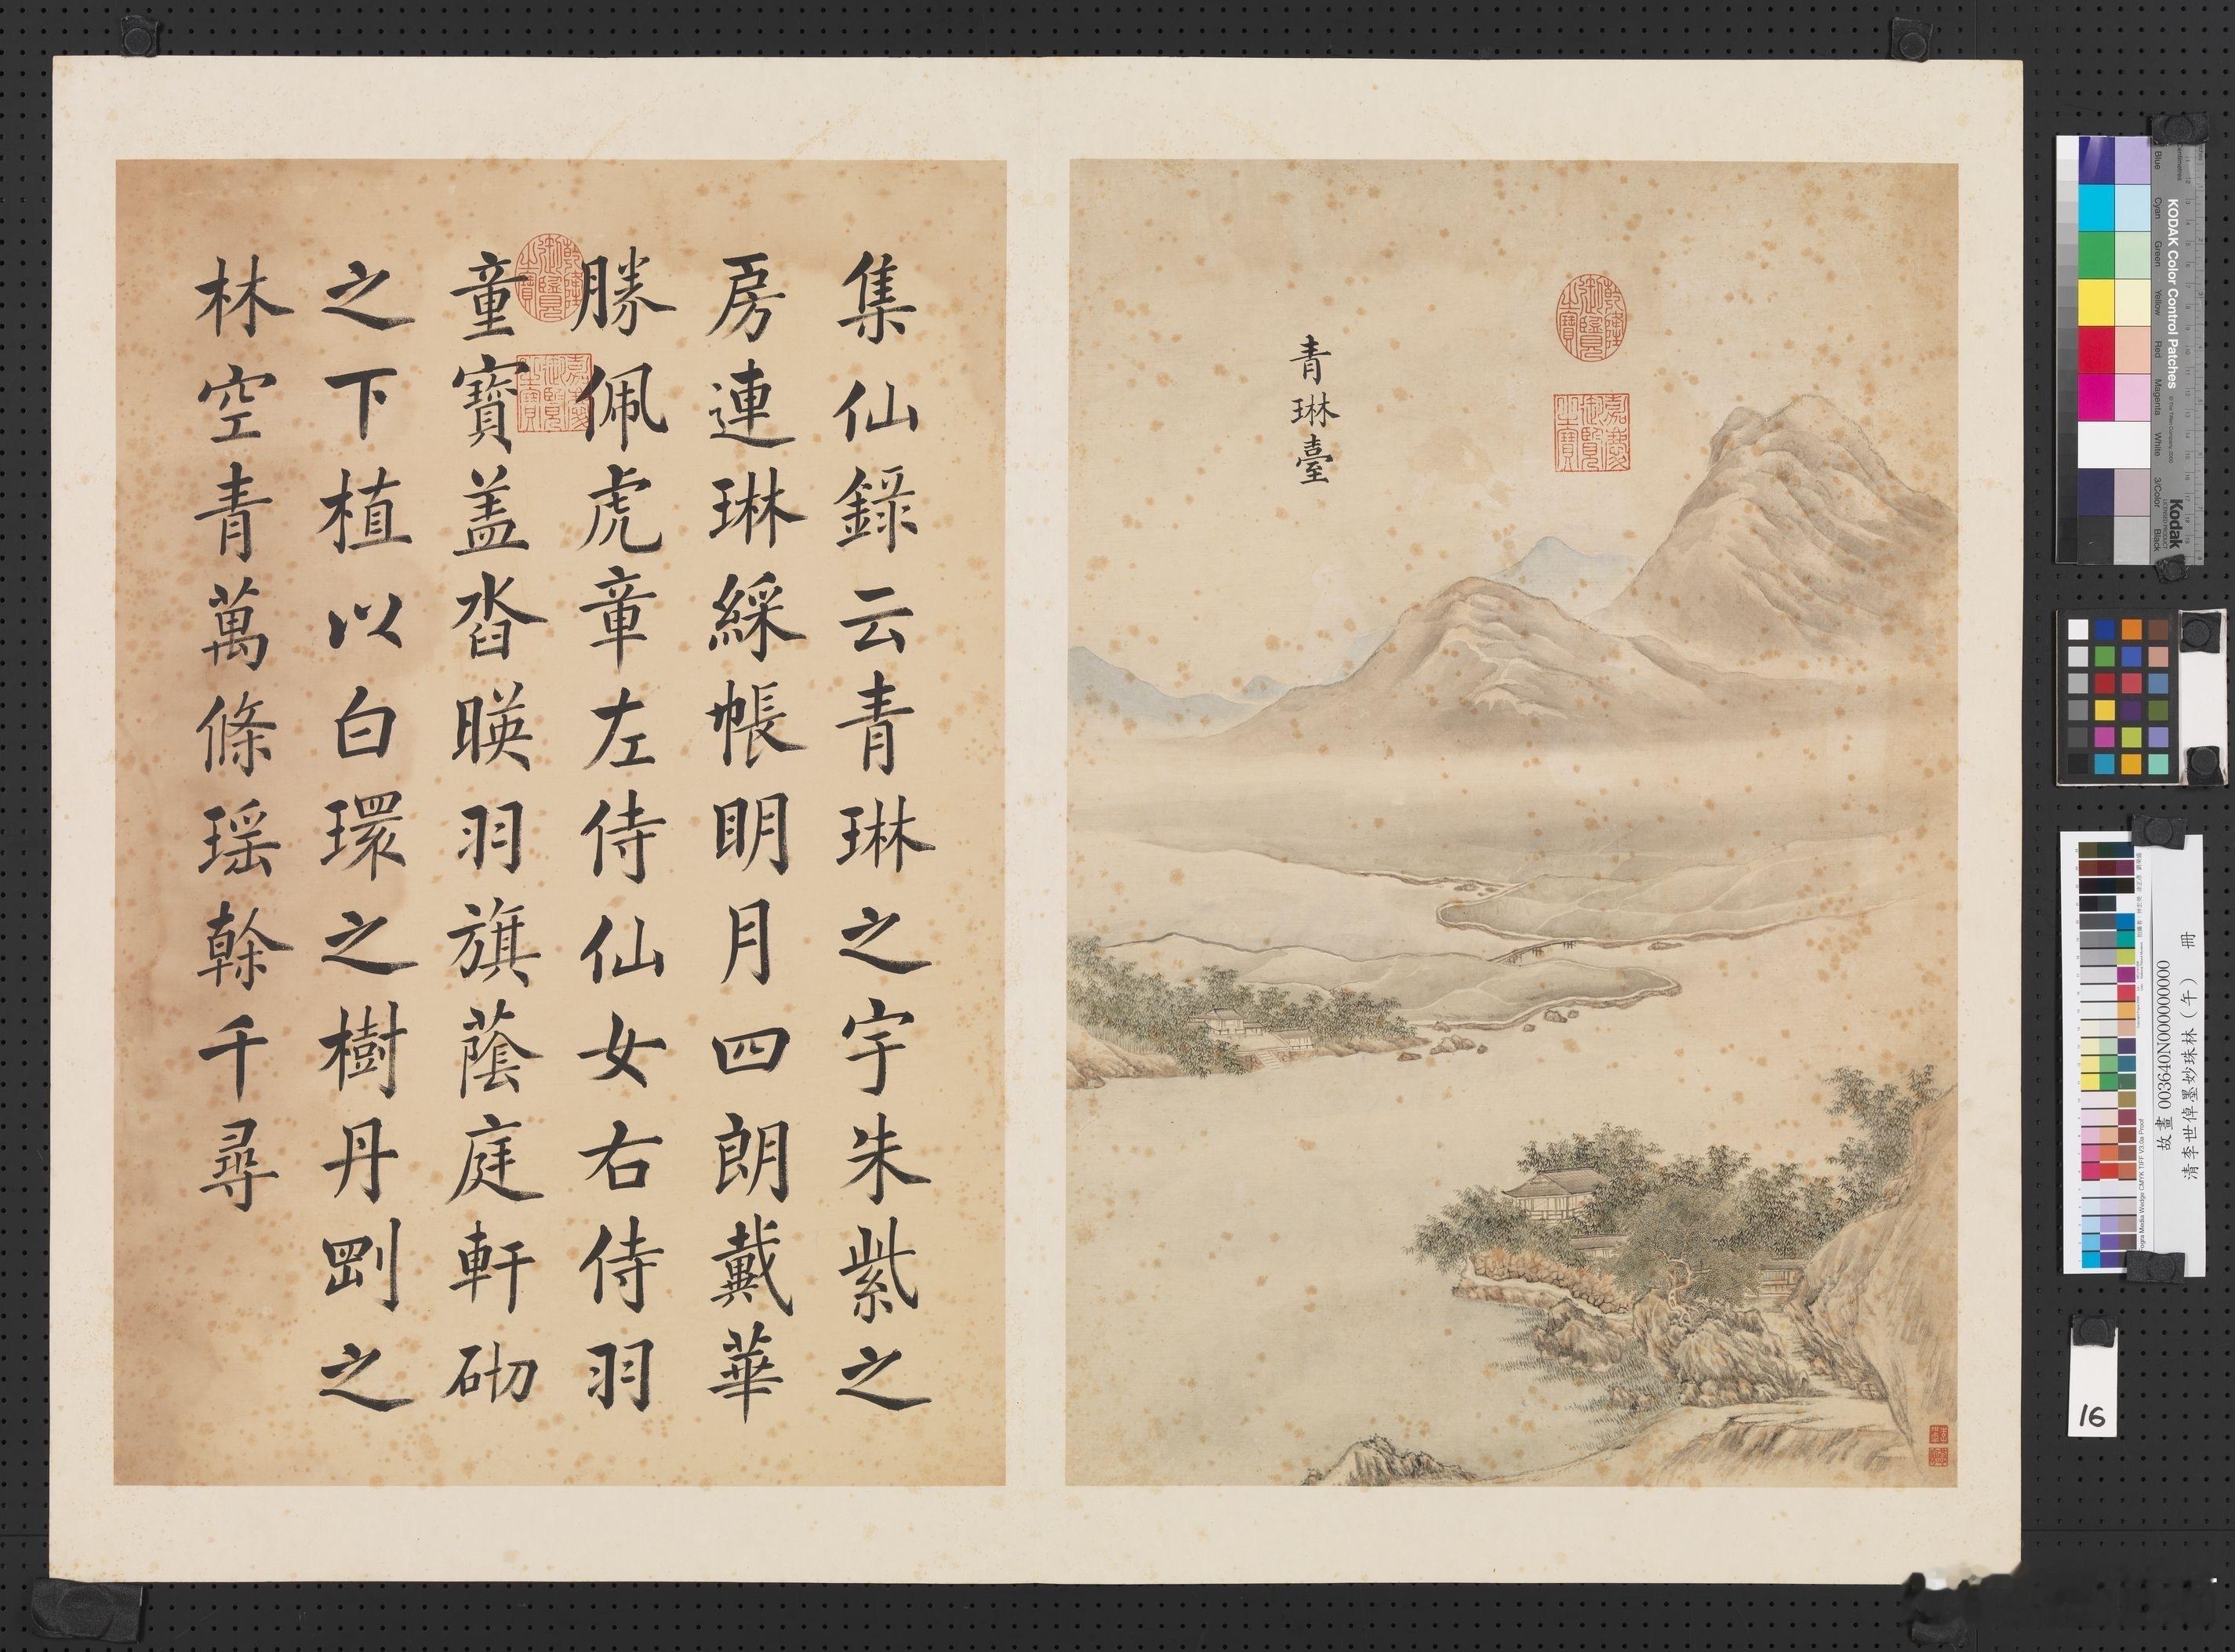 青琳臺
乾隆御覽之寶
嘉慶御覽之寶
集仙錄云青琳之宇朱紫之
房連琳綵帳眀月四朗戴華
勝佩虎章左侍仙女右侍羽
童寶盖沓暎羽旗蔭庭軒砌
之下植以白環之樹丹剛之
林空青萬條瑶榦千尋
乾隆御覽之寶
嘉慶御覽之寶
KODAK Color Control Patches
Blue
Cyan
Green
Yellow
Red
Magenta
White
3/Color
Black
Kodak
故畫 003640N000000000
清李世倬墨妙珠林(午) 冊
16